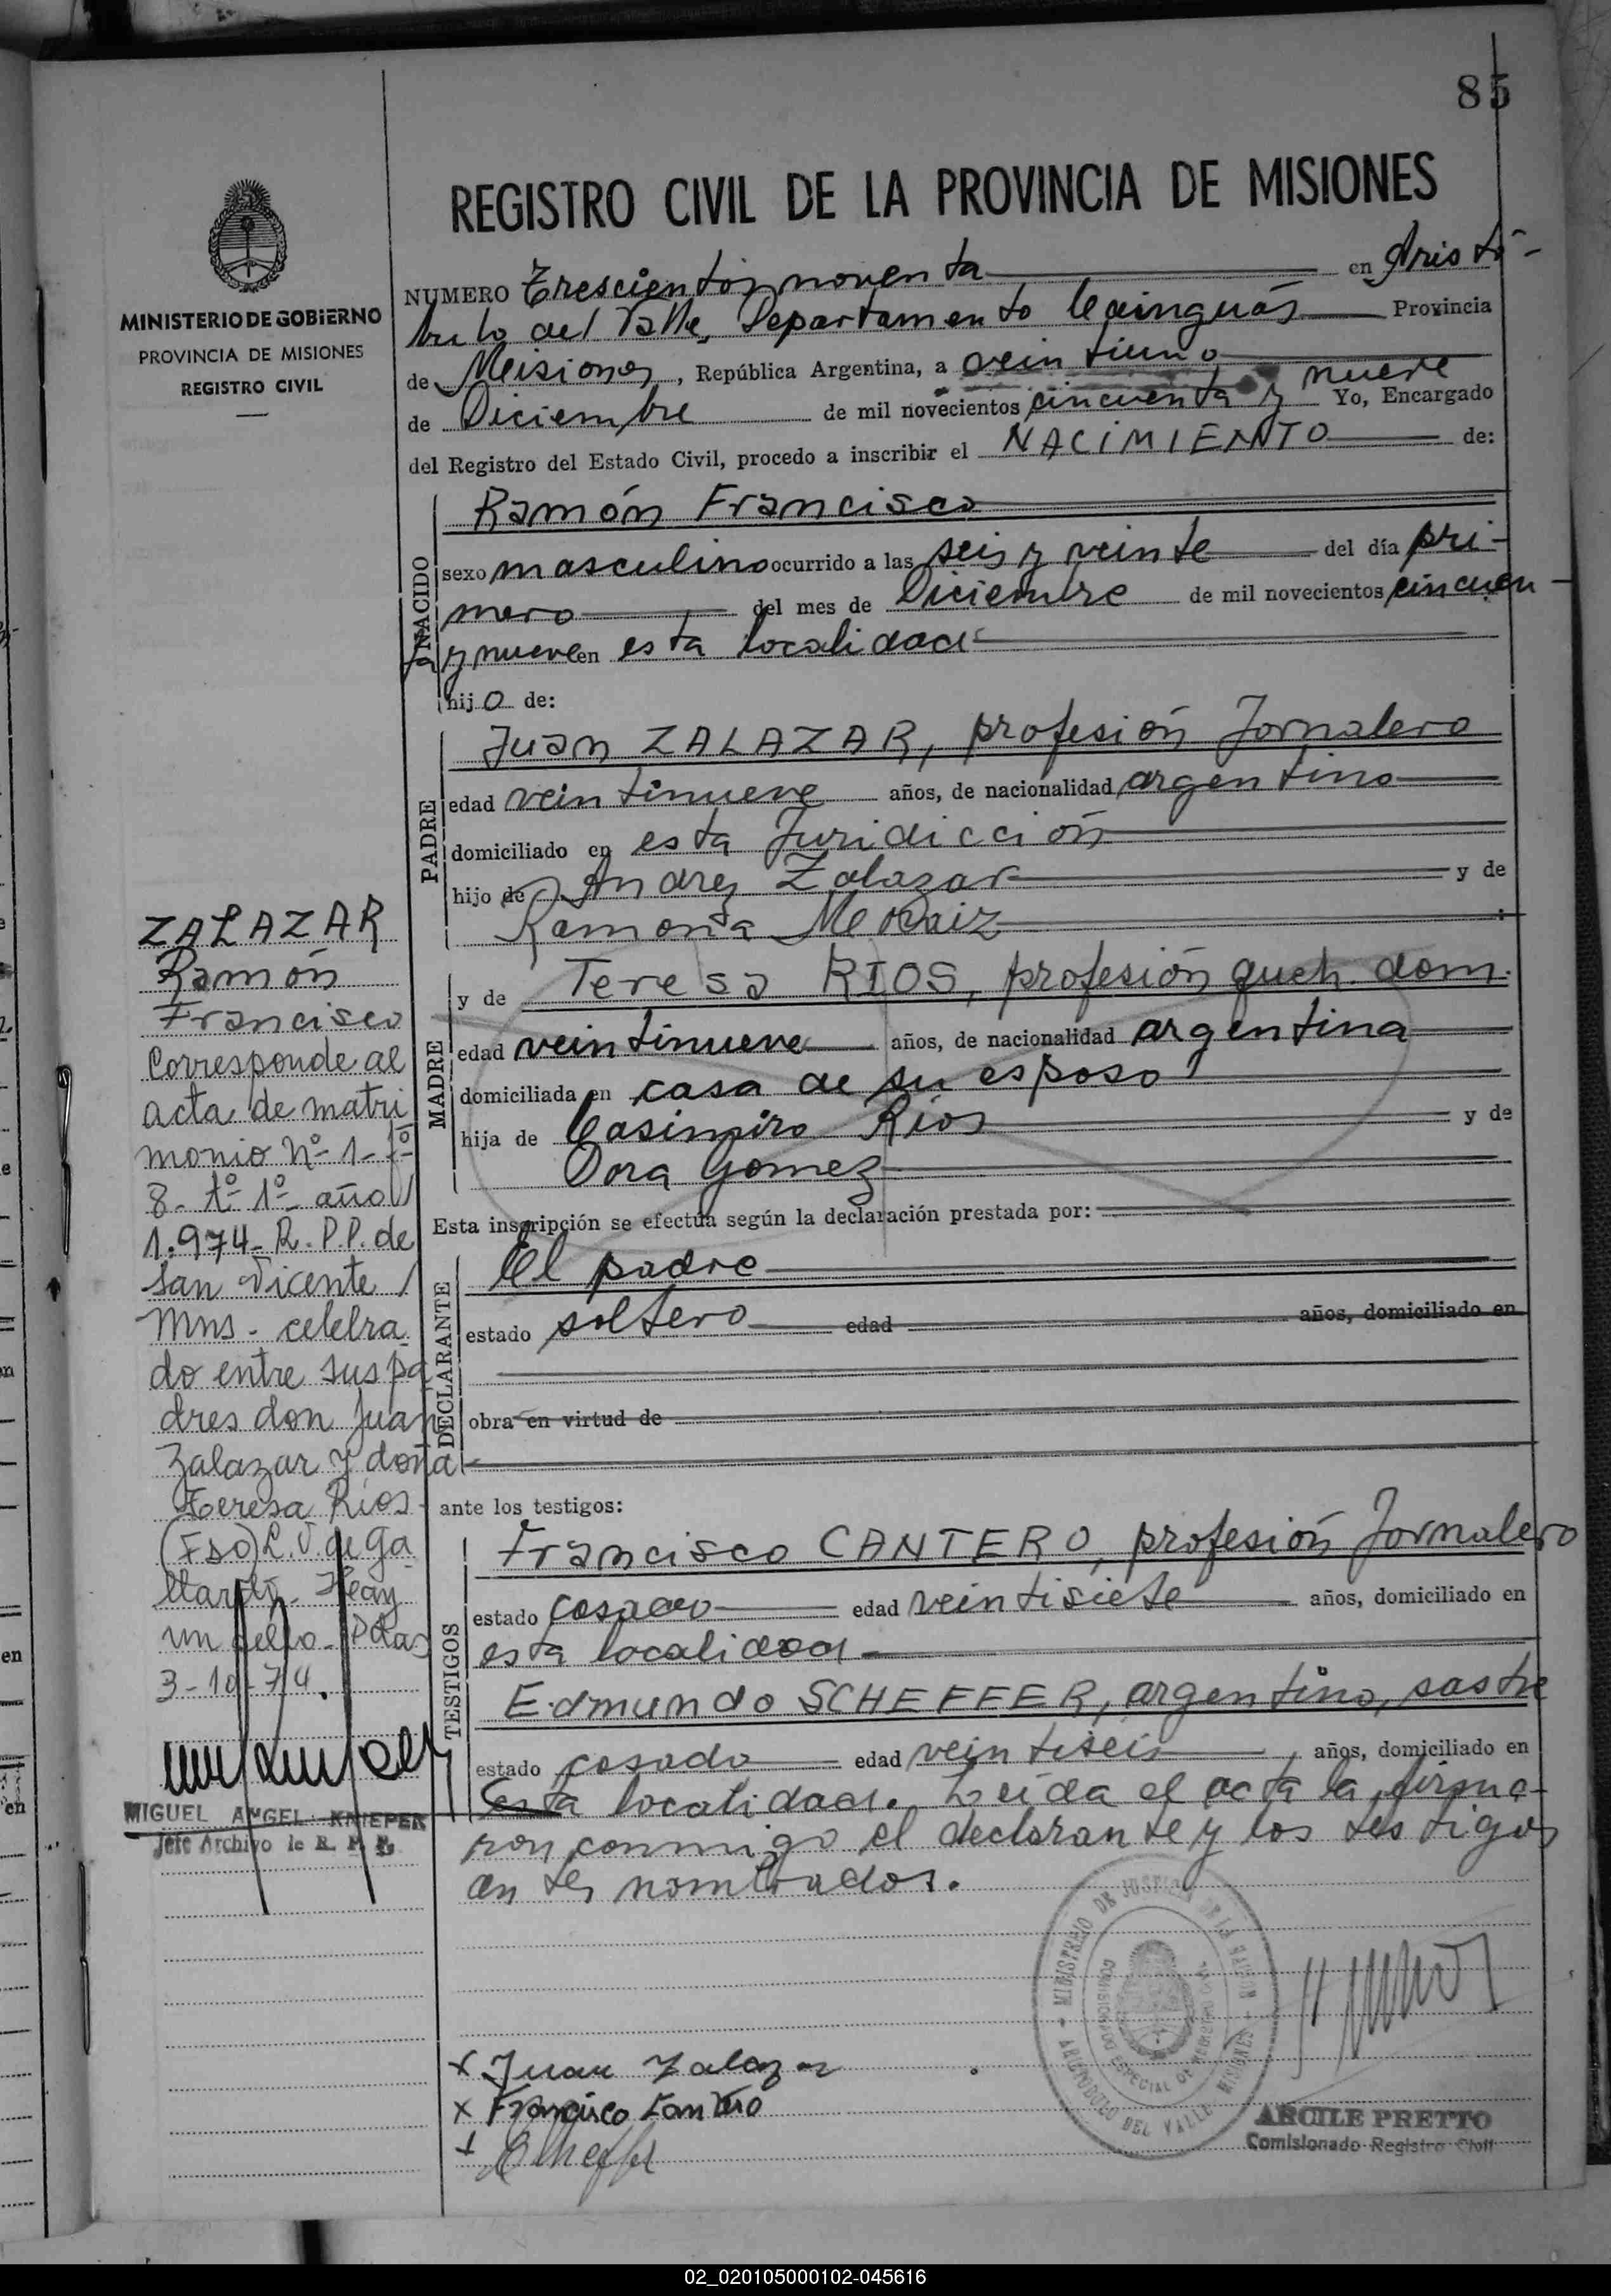 85
REGISTRO CIVIL DE LA PROVINCIA DE MISIONES
MINISTERIO DE GOBIERNO
PROVINCIA DE MISIONES
REGISTRO CIVIL
NUMERO Trescientos noventa en Aristó-
bulo del Valle, Departamento Cainguás Provincia
de Misiones, República Argentina, a veintiuno
de Diciembre de mil novecientos cincuenta y nueve Yo, Encargado
del Registro del Estado Civil, procedo a inscribir el NACIMIENTO de:
NACIDO
Ramón Francisco
sexo masculino ocurrido a las seis y veinte del día pri-
mero del mes de Diciembre de mil novecientos cincuen-
ta y nueve en esta localidad
hijo de:
PADRE
Juan ZALAZAR, profesión Jornalero
edad veintinueve años, de nacionalidad argentino
domiciliado en esta Juridicción
hijo de Andres Zalazar y de
Ramona
MADRE
y de Teresa RIOS, profesión queh. dom.
edad veintinueve años, de nacionalidad argentina
domiciliada en casa de su esposo
hija de Casimiro Rios y de
Dora Gomez
Esta inscripción se efectúa según la declaración prestada por:
DECLARANTE
El padre
estado soltero edad años, domiciliado en
obra en virtud de
ante los testigos:
TESTIGOS
Francisco CANTERO, profesión Jornalero
estado casado edad veintisiete años, domiciliado en
esta localidad
Edmundo SCHEFFER, argentino, sastre
estado casado edad veintiseis años, domiciliado en
esta localidad. Leída el acta la firma-
ron conmigo el declarante y los testigos
antes nombrados.
x Juan Zalazar
x Francisco Cantero
x
MINISTERIO DE JUSTICIA DE LA NACION
COMISIONADO ESPECIAL DE REGISTRO CIVIL
ARISTOBULO DEL VALLE MISIONES
ARCILE PRETTO
Comisionado Registro Civil
ZALAZAR
Ramón
Francisco
Corresponde al
acta de matri
monio Nº 1- Fº
8- Tº 1º año
1.974- R. P. P. de
San Vicente
Mns- celebra
do entre sus pa
dres don Juan
Zalazar y doña
Teresa Rios-
(Fdo) L. V. de Ga
llardo- Hay
un sello- Pdas
3-10-74.
MIGUEL ANGEL KNIEPER
Jefe Archivo de R. P. P.
02_020105000102-045616